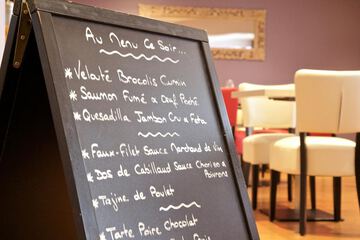 Au Menu Ce Soir...
* Velouté Brocolis Cumin
* Saumon Fumé a Oeuf Poché
* Quesadilla Jambon Cru a Feta
* Faux-Filet Sauce Marchand de vin
* Dos de Cabillaud Sauce Chorizo a Poivrons
* Tajine de Poulet
* Tarte Poire Chocolat